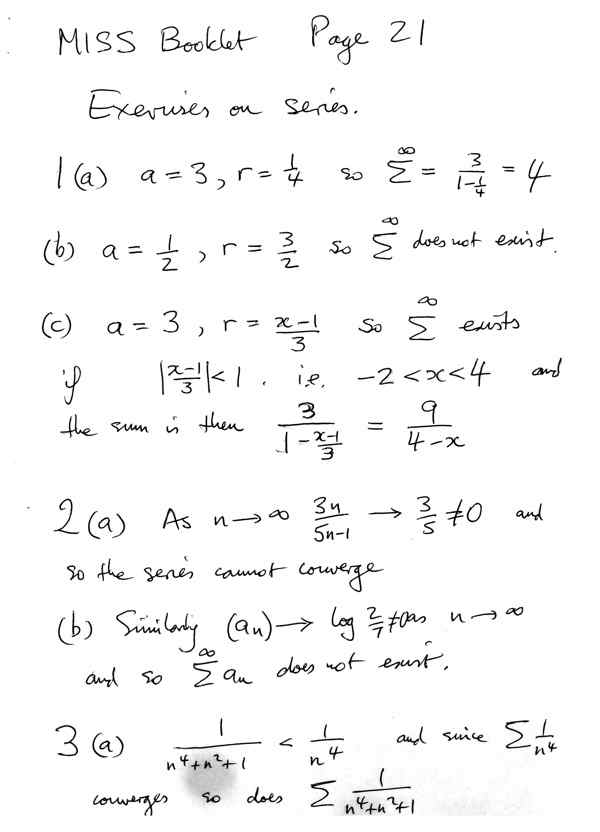 MISS Booklet Page 21
Exercises on series.
1(a) a = 3, r = 1/4 so ∑^∞ = 3/(1-1/4) = 4
(b) a = 1/2, r = 3/2 so ∑^∞ does not exist.
(c) a = 3, r = (x-1)/3 so ∑^∞ exists
if |(x-1)/3| < 1. i.e. -2 < x < 4 and
the sum is then 3/(1-(x-1)/3) = 9/(4-x)
2(a) As n → ∞ 3n/(5n-1) → 3/5 ≠ 0 and
so the series cannot converge
(b) Similarly (an) → log 2/7 ≠ 0 as n → ∞
and so ∑^∞ an does not exist.
3(a) 1/(n^4+n^2+1) < 1/n^4 and since ∑ 1/n^4
converges so does ∑ 1/(n^4+n^2+1)